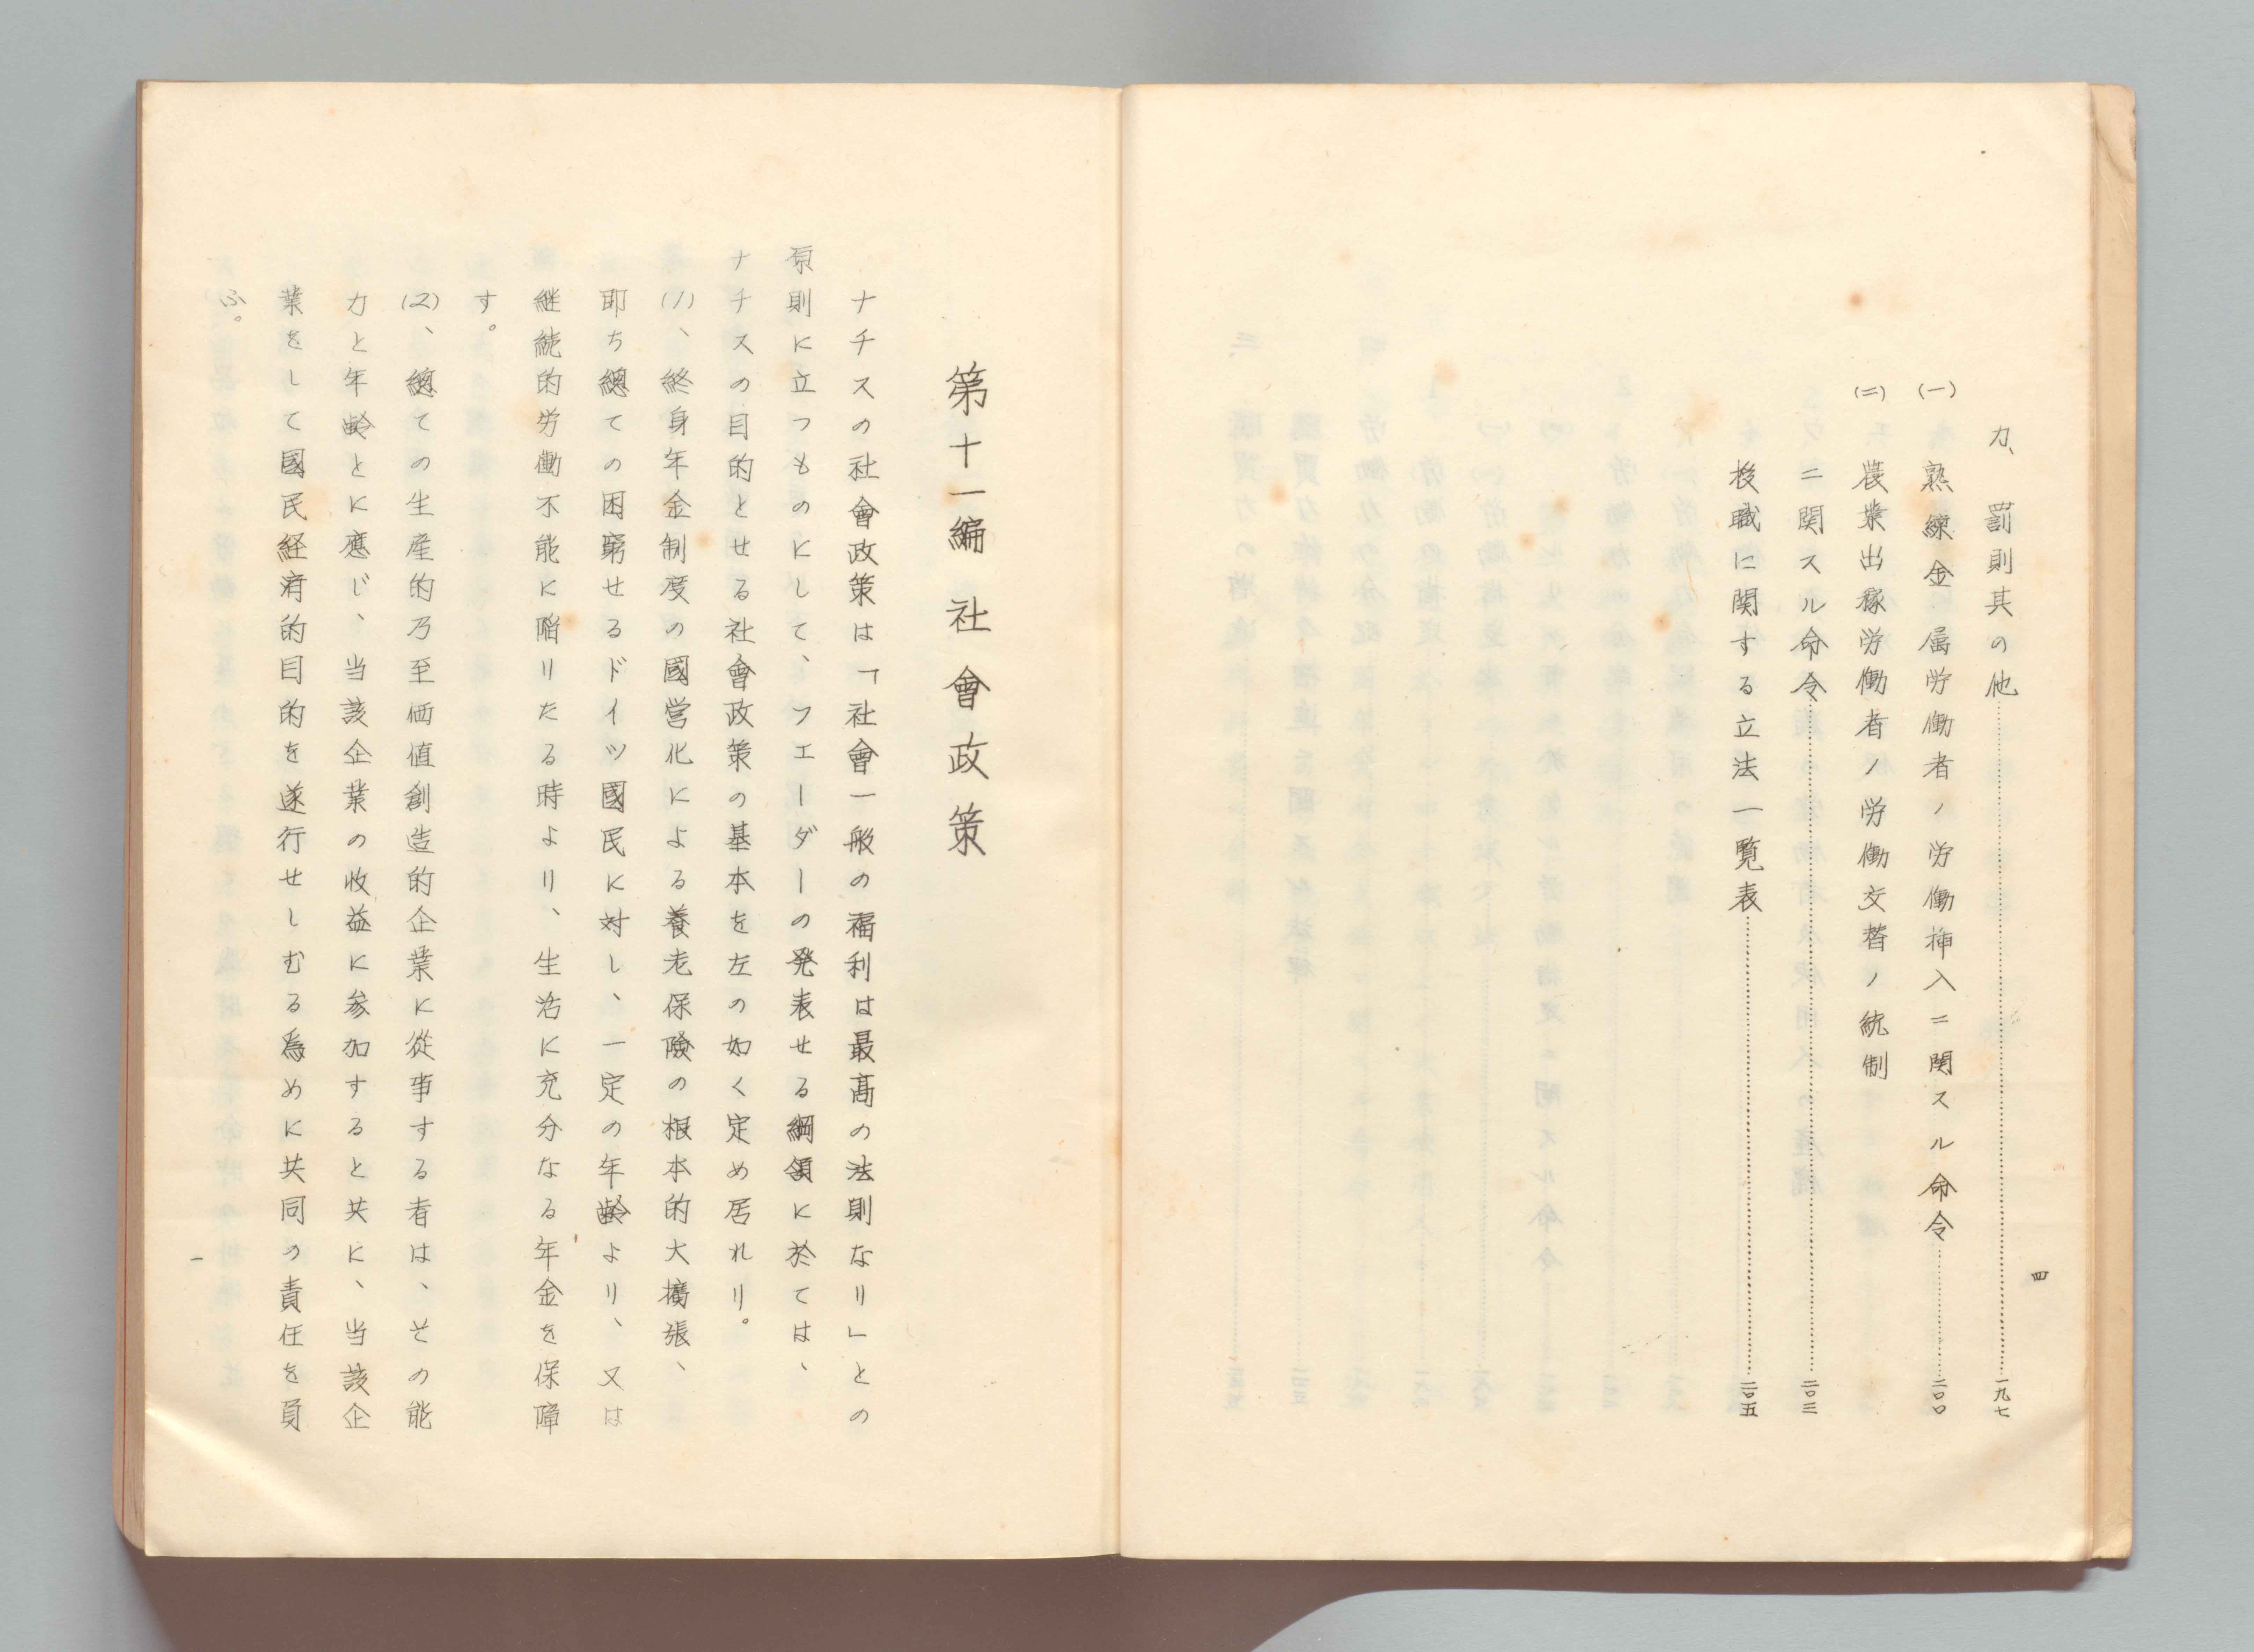 カ、罰則其の他…………一九七
(一) 熟練金属労働者ノ労働挿入ニ関スル命令…………二〇〇
(二) 農業出稼労働者ノ労働交替ノ統制
ニ関スル命令…………二〇三
授職に関する立法一覧表…………二〇五
四
第十一編 社會政策
ナチスの社會政策は「社會一般の福利は最高の法則なり」との
原則に立つものにして、フエーダーの発表せる綱領に於ては、
ナチスの目的とせる社會政策の基本を左の如く定め居れり。
(1)、終身年金制度の國営化による養老保険の根本的大擴張、
即ち總ての困窮せるドイツ國民に対し、一定の年齢より、又は
継続的労働不能に陥りたる時より、生活に充分なる年金を保障
す。
(2)、總ての生産的乃至価値創造的企業に從事する者は、その能
力と年齢とに應じ、当該企業の收益に参加すると共に、当該企
業をして國民経済的目的を遂行せしむる爲めに共同の責任を負
ふ。
一